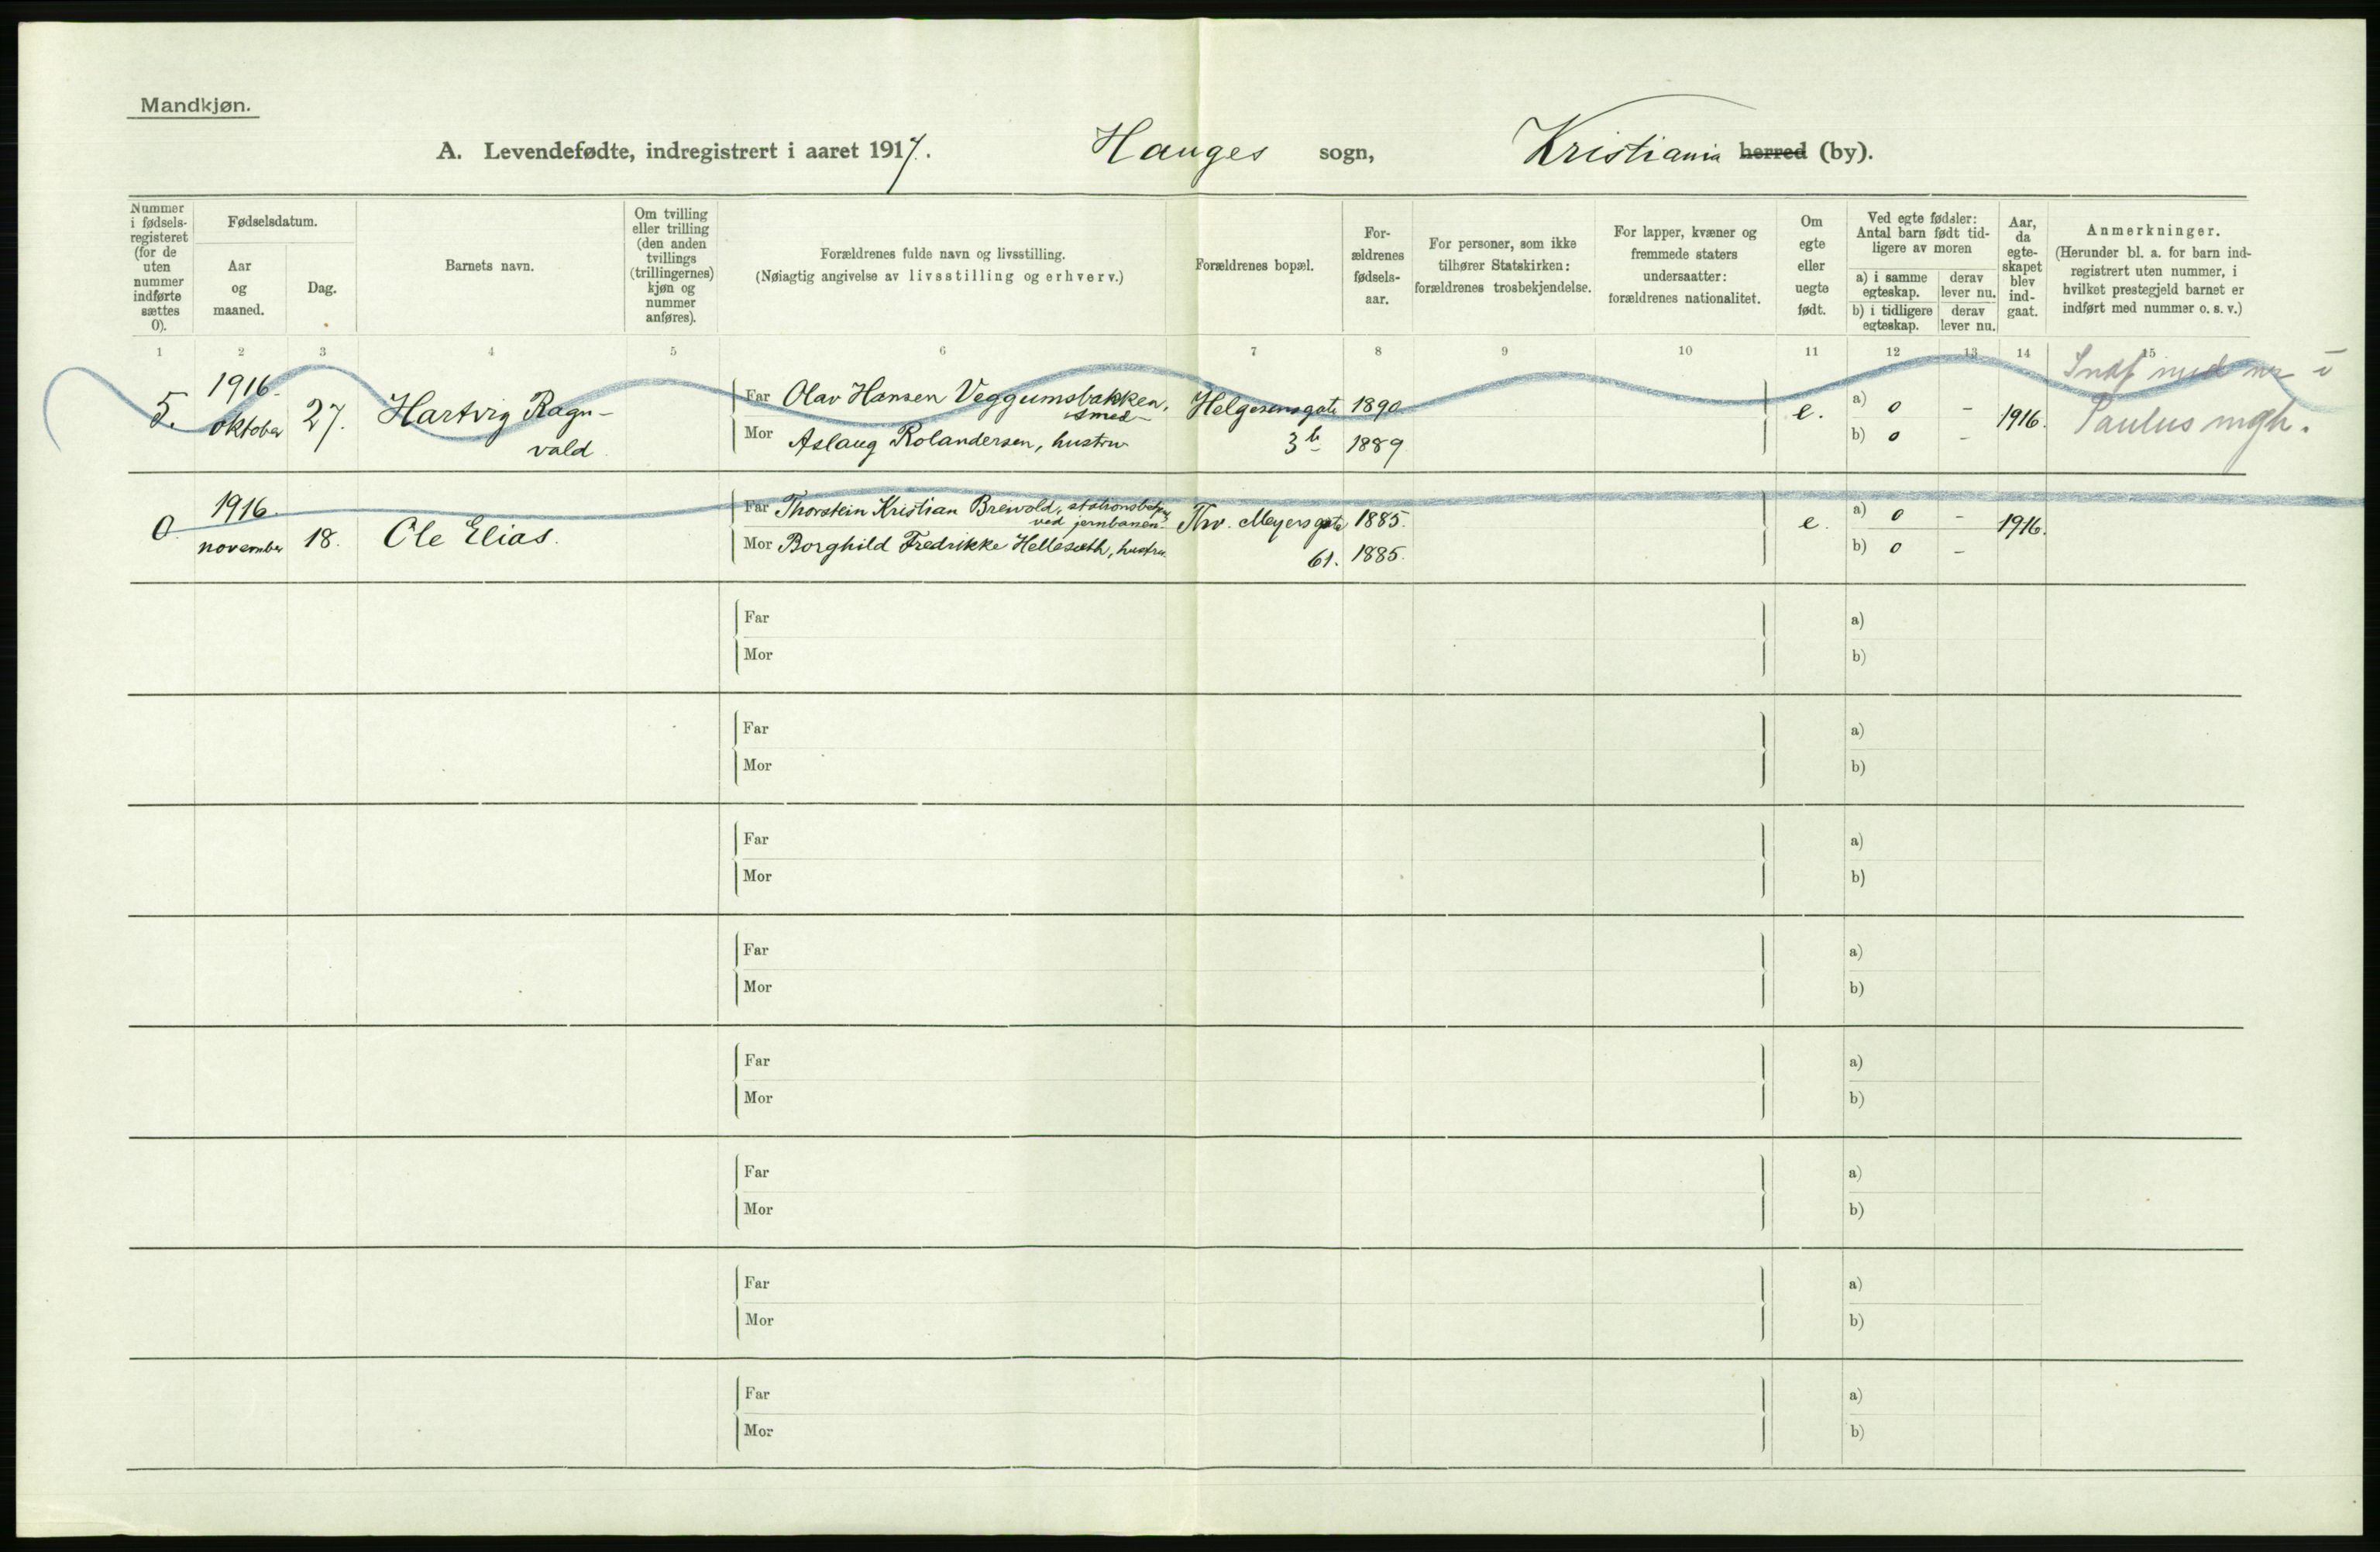 Mandkjøn.
A. Levendefødte, indregistrert i aaret 1917. Hauges sogn, Kristiania herred (by).
Nummer i fødsels-registeret (for de uten nummer indførte sættes 0).
Fødselsdatum.
Aar og maaned.
Dag.
Barnets navn.
Om tvilling eller trilling (den anden tvillings (trillingernes) kjøn og nummer anføres).
Forældrenes fulde navn og livsstilling.
(Nøiagtig angivelse av livsstilling og erhverv.)
Forældrenes bopæl.
For-ældrenes fødsels-aar.
For personer, som ikke tilhører Statskirken: forældrenes trosbekjendelse.
For lapper, kvæner og fremmede staters undersaatter: forældrenes nationalitet.
Om egte eller uegte født.
Ved egte fødsler: Antal barn født tid-ligere av moren
a) i samme egteskap.
derav lever nu.
b) i tidligere egteskap.
derav lever nu.
Aar, da egte-skapet blev ind-gaat.
Anmerkninger.
(Herunder bl. a. for barn ind-registrert uten nummer, i hvilket prestegjeld barnet er indført med nummer o. s. v.)
1 2 3 4 5 6 7 8 9 10 11 12 13 14 15
5. 1916. oktober 27. Hartvig Ragn-vald
Far Olav Hansen Veggumsbakken, smed
Mor Aslaug Rolandersen, hustru
Helgesensgate 3 b
1890.
1889
e.
a) 0 -
b) 0 -
1916.
Indf med nr i
Paulus mgh.
0. 1916. november 18. Ole Elias.
Far Thorstein Kristian Breivold, ved jernbanen.
Mor Borghild Fredrikke Hellesæth, hustru
Thv. Meyersgate 61.
1885.
1885.
e.
a) 0 -
b) 0 -
1916.
Far a)
Mor b)
Far a)
Mor b)
Far a)
Mor b)
Far a)
Mor b)
Far a)
Mor b)
Far a)
Mor b)
Far a)
Mor b)
Far a)
Mor b)